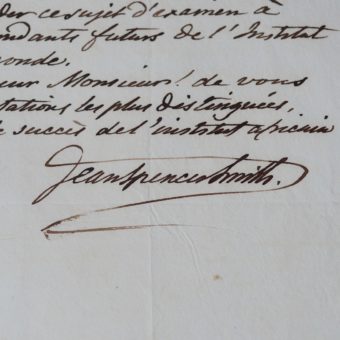 der ce sujet d'examen à
ndants futurs de l'Institut
onde.
eur Monsieur! de vous
tations les plus distinguées,
e succès de l'institut africain
Jean Spencer Smith.